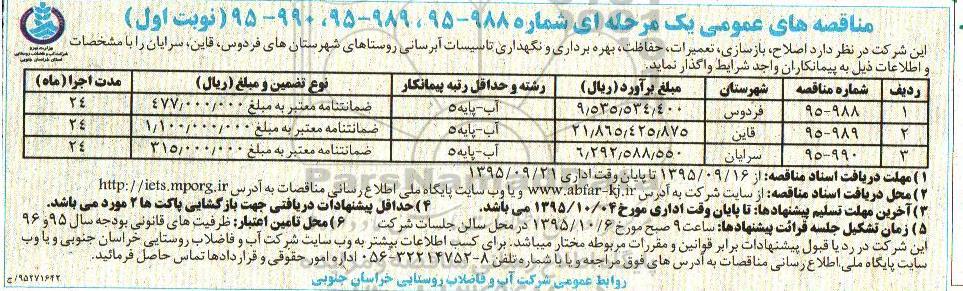 مناقصه های عمومی یک مرحله ای شماره ۹۸۸-۹۵، ۹۸۹-۹۵، ۹۹۰-۹۵ (نوبت اول)
این شرکت در نظر دارد اصلاح، بازسازی، تعمیرات، حفاظت، بهره برداری و نگهداری تاسیسات آبرسانی روستاهای شهرستان های فردوس، قاین، سرایان را با مشخصات
و اطلاعات ذیل به پیمانکاران واجد شرایط واگذار نماید.
ردیف شماره مناقصه شهرستان مبلغ برآورد (ریال) رشته و حداقل رتبه پیمانکار نوع تضمین و مبلغ (ریال) مدت اجرا (ماه)
۱ ۹۵-۹۸۸ فردوس ۹,۵۳۵,۵۳۴,۴۰۰ آب-پایه۵ ضمانتنامه معتبر به مبلغ ۴۷۷,۰۰۰,۰۰۰ ۲۴
۲ ۹۵-۹۸۹ قاین ۲۱,۸۶۵,۴۲۵,۸۷۵ آب-پایه۵ ضمانتنامه معتبر به مبلغ ۱,۱۰۰,۰۰۰,۰۰۰ ۲۴
۳ ۹۵-۹۹۰ سرایان ۶,۲۹۲,۵۸۸,۵۵۰ آب-پایه۵ ضمانتنامه معتبر به مبلغ ۳۱۵,۰۰۰,۰۰۰ ۲۴
۱) مهلت دریافت اسناد مناقصه: از ۱۳۹۵/۰۹/۱۶ تا پایان وقت اداری ۱۳۹۵/۰۹/۲۱
۲) محل دریافت اسناد مناقصه: از سایت شرکت به آدرس www.abfar-kj.ir و یا وب سایت پایگاه ملی اطلاع رسانی مناقصات به آدرس http://iets.mporg.ir
۳) آخرین مهلت تسلیم پیشنهادها: تا پایان وقت اداری مورخ ۱۳۹۵/۱۰/۰۴ می باشد. ۴) حداقل پیشنهادات دریافتی جهت بازگشایی پاکت ها ۲ مورد می باشد.
۵) زمان تشکیل جلسه قرائت پیشنهادها: ساعت ۹ صبح مورخ ۱۳۹۵/۱۰/۶ در محل سالن جلسات شرکت ۶) محل تامین اعتبار: ظرفیت های قانونی بودجه سال ۹۵ و ۹۶
این شرکت در رد یا قبول پیشنهادات برابر قوانین و مقررات مربوطه مختار میباشد. برای کسب اطلاعات بیشتر به وب سایت شرکت آب و فاضلاب روستایی خراسان جنوبی و یا وب
سایت پایگاه ملی اطلاع رسانی مناقصات به آدرس های فوق مراجعه و یا با شماره تلفن ۸-۳۲۲۱۴۷۵۲-۰۵۶ اداره امور حقوقی و قراردادها تماس حاصل فرمائید.
روابط عمومی شرکت آب و فاضلاب روستایی خراسان جنوبی
۹۵۲۷۱۶۴۲/ج